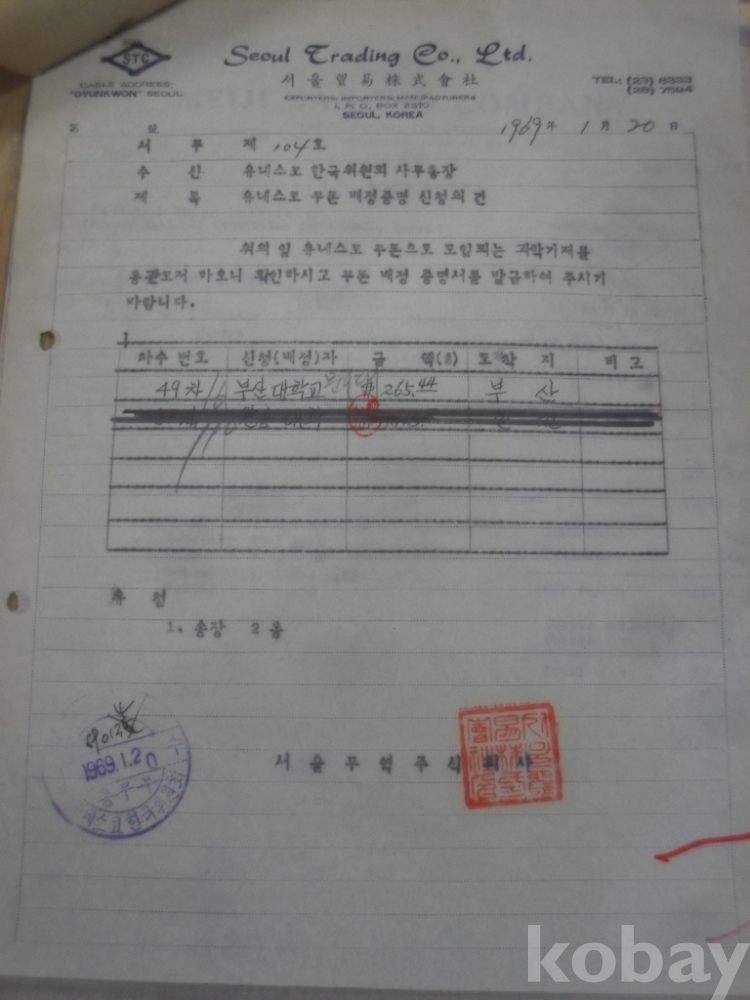 STC
Seoul Trading Co., Ltd.
서울貿易株式會社
CABLE ADDRESS:
"OYUNKWON" SEOUL
EXPORTERS, IMPORTERS, MANUFACTURERS
I. P. O. BOX 2310
SEOUL, KOREA
TEL: (23) 8333
(28) 7594
第 號
1969年 1月 20日
서 부 제 104호
수 신 유네스코 한국위원회 사무총장
제 목 유네스코 쿠폰 배정증명 신청의 건
위의 일 유네스코 쿠폰으로 도입되는 과학기재를
통관코저 하오니 확인하시고 쿠폰 배정 증명서를 발급하여 주시기
바랍니다.
차수 번호 신청(배정)자 금 액(弗) 도착지 비고
49차 부산대학교 $265.44 부산
유 첨
1. 송장 2통
서울무역주식회사
1969.1.20
kobay